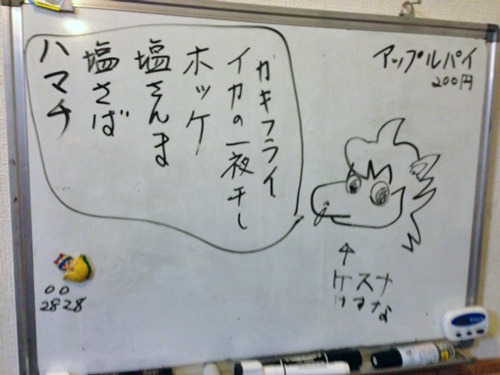 カキフライ
イカの一夜干し
ホッケ
塩さんま
塩さば
ハマチ
アップルパイ
200円
ナスケ
なすけ
00
2828